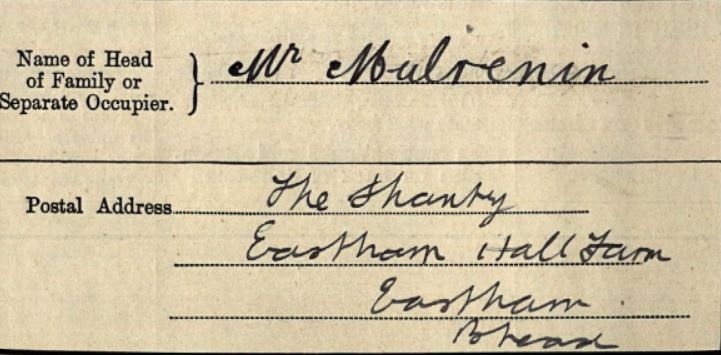 Name of Head
of Family or
Separate Occupier.
Mr Mulvenin
Postal Address
The Shanty
Eastham Hall Farm
Eastham
Bhead